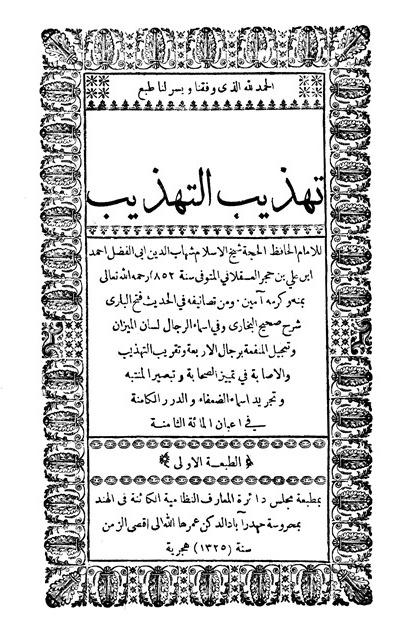 الحمد لله الذى وفقنا ويسر لنا طبع
تهذيب التهذيب
للامام الحافظ الحجة شيخ الاسلام شهاب الدين ابى الفضل احمد
ابن علي بن حجر العسقلاني المتوفى سنة ٨٥٢ رحمه الله تعالى
بمنه وكرمه آمين ٠ ومن تصانيفه في الحديث فتح البارى
شرح صحيح البخارى وفي اسماء الرجال لسان الميزان
وتعجيل المنفعة برجال الاربعة وتقريب التهذيب
والاصابة في تمييز الصحابة وتبصير المنتبه
وتجريد اسماء الضعفاء والدرر الكامنة
في اعيان المائة الثامنة
الطبعة الاولى
بمطبعة مجلس دائرة المعارف النظامية الكائنة فى الهند
بمحروسة حيدرآباد الدكن عمرها الله الى اقصى الزمن
سنة (١٣٢٥) هجرية